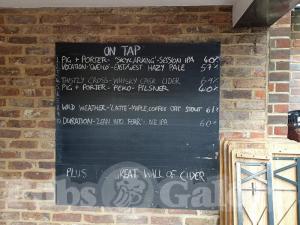 ON TAP
1. PIG + PORTER - 'SKYLARKING' - SESSION IPA 4.0%
VOCATION - EAST/WEST HAZY PALE 5.7%
THISTLY CROSS - WHISKY CASK CIDER 6.9%
PIG + PORTER - PILSNER 4.0%
WILD WEATHER - MAPLE, COFFEE OAT STOUT 6.1%
10 DURATION - DDH IPA 6.0%
PLUS GREAT WALL OF CIDER
Pubs Galore